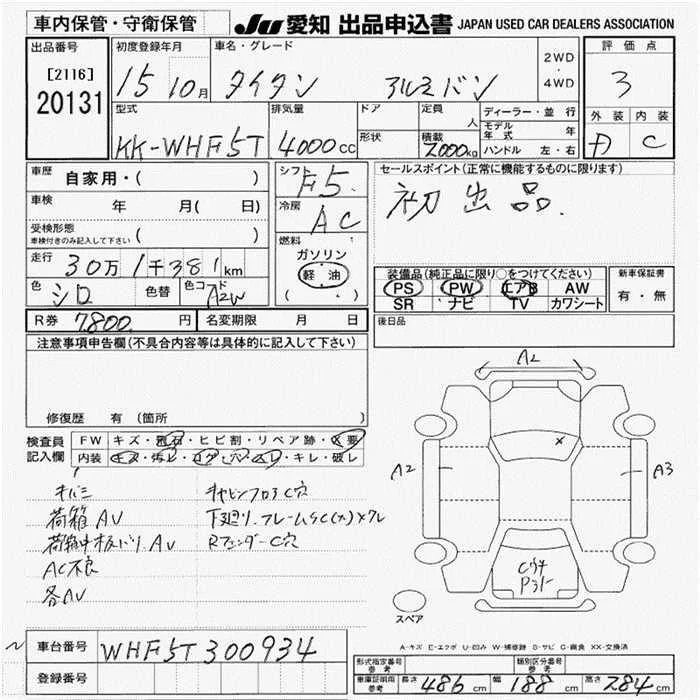 車内保管・守衛保管
JU 愛知 出品申込書 JAPAN USED CAR DEALERS ASSOCIATION
出品番号
[2116]
20131
初度登録年月
15 10月
車名・グレード
タイタン アルミバン
2WD
・
4WD
評価点
3
型式
KK-WHF5T
排気量
4000cc
ドア
形状
定員
人
積載
2000kg
ディーラー・並行
モデル年式 年
ハンドル 左・右
外装 内装
D C
車歴 自家用・( )
車検 年 月(日)
受検形態
車検付きのみ記入して下さい ( )
走行 30万1千381km
色 シロ 色替 色コード A2W
シフト F5
冷房 AC
燃料
ガソリン
軽油
( )
セールスポイント(正常に機能するものに限ります)
初出品.
装備品(純正品に限り○をつけてください)
PS PW エアB AW
SR ナビ TV カワシート
新車保証書
有・無
R券 7,800 円 名変期限 月 日
後日品
注意事項申告欄(不具合内容等は具体的に記入して下さい)
修復歴 有(箇所 )
検査員記入欄
FW キズ・飛石・ヒビ割・リペア跡・X要
内装 キズ・汚レ・コゲ・穴・スレ・キレ・破レ
キバミ
荷箱AV
AC不良
各AV
キャビンフロアC穴
RフェンダーC穴
A2
A2
A3
スペア
A-キズ E-エクボ U-凹み W-補修跡 S-サビ C-腐食 XX-交換済
車台番号 WHF5T300934
登録番号
形式指定番号
参考
類別区分番号
参考
車庫証明用
参考
長さ 486cm 幅 188cm 高さ 284cm